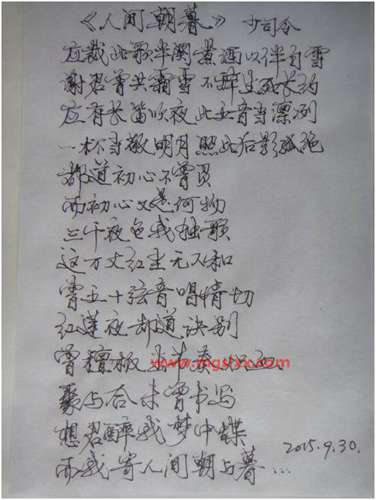 《人间朝暮》 少司令
应裁此歌半阕煮酒以伴白雪
谢君曾共霜雪不辞生死长约
应有长笛吹夜此女音当凛冽
一杯当敬明月照此后影孤绝
都道初心不曾灭
而初心又是何物
三千夜色我独歌
这万丈红尘无人和
曾五十弦音唱情切
红莲夜却道诀别
曾檀板
www.mgslxx.com
聚与合未曾书写
想君醉我梦中蝶
而我寄人间朝与暮…
2015.9.30.